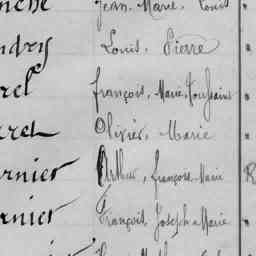 nche Jean. Marie. Louis
ndry Louis. Pierre
rel François. Marie. Toussaint
rrel Olivier. Marie
rnier Arthur, François Marie R
rnier François Joseph Marie